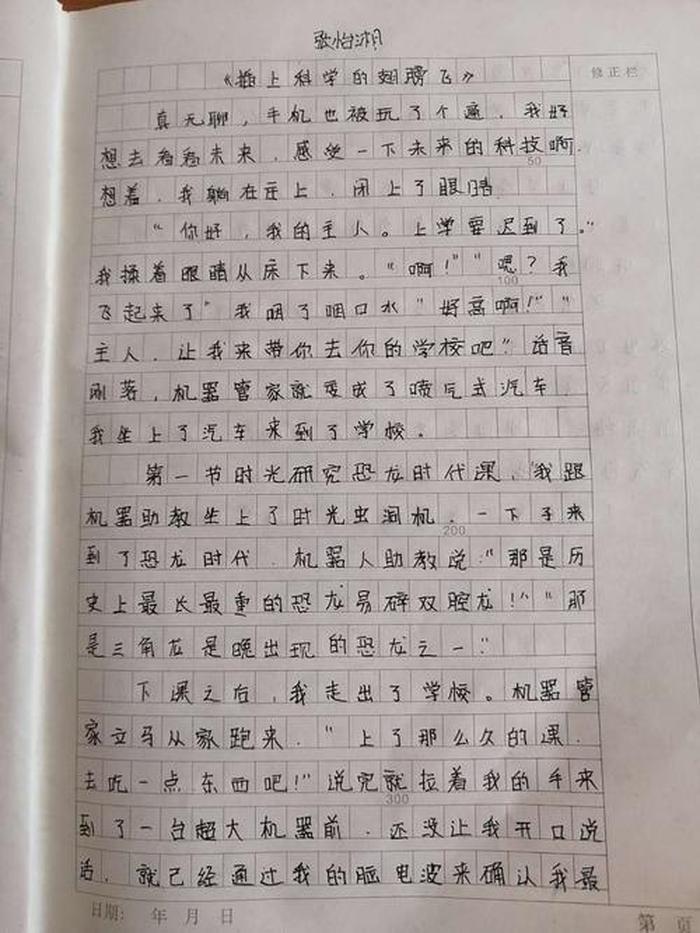 张怡湘
《插上科学的翅膀飞》
修正栏
真无聊，手机也被玩了个遍，我好
想去看看未来，感受一下未来的科技啊.
50
想着，我躺在床上，闭上了眼睛
“你好，我的主人。上学要迟到了。”
我揉着眼睛从床下来。“啊！”“嗯？我
100
飞起来了”我咽了咽口水“好高啊！”“
主人，让我来带你去你的学校吧”话音
刚落，机器管家就变成了喷气式汽车.
我坐上了汽车来到了学校。
第一节时光研究恐龙时代课，“我跟
机器助教坐上了时光虫洞机，一下子来
200
到了恐龙时代.机器人助教说：“那是历
史上最长最重的恐龙易碎双腔龙！”“那
是三角龙是晚出现的恐龙之一.”
下课之后，我走出了学校。机器管
家立马从家跑来.“上了那么久的课.
去吃一点东西吧！”说完就拉着我的手来
300
到了一台超大机器前.还没让我开口说
话.就已经通过我的脑电波来确认我最
日期: 年 月 日
第 页